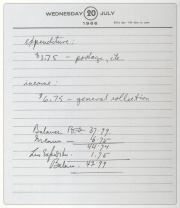 WEDNESDAY 20 JULY
1966
expenditure:
$1.75 - postage, etc.
income:
$6.75 - general collection
Balance 37.99
Income 6.75
44.74
Less Expend. 1.75
Balance 42.99